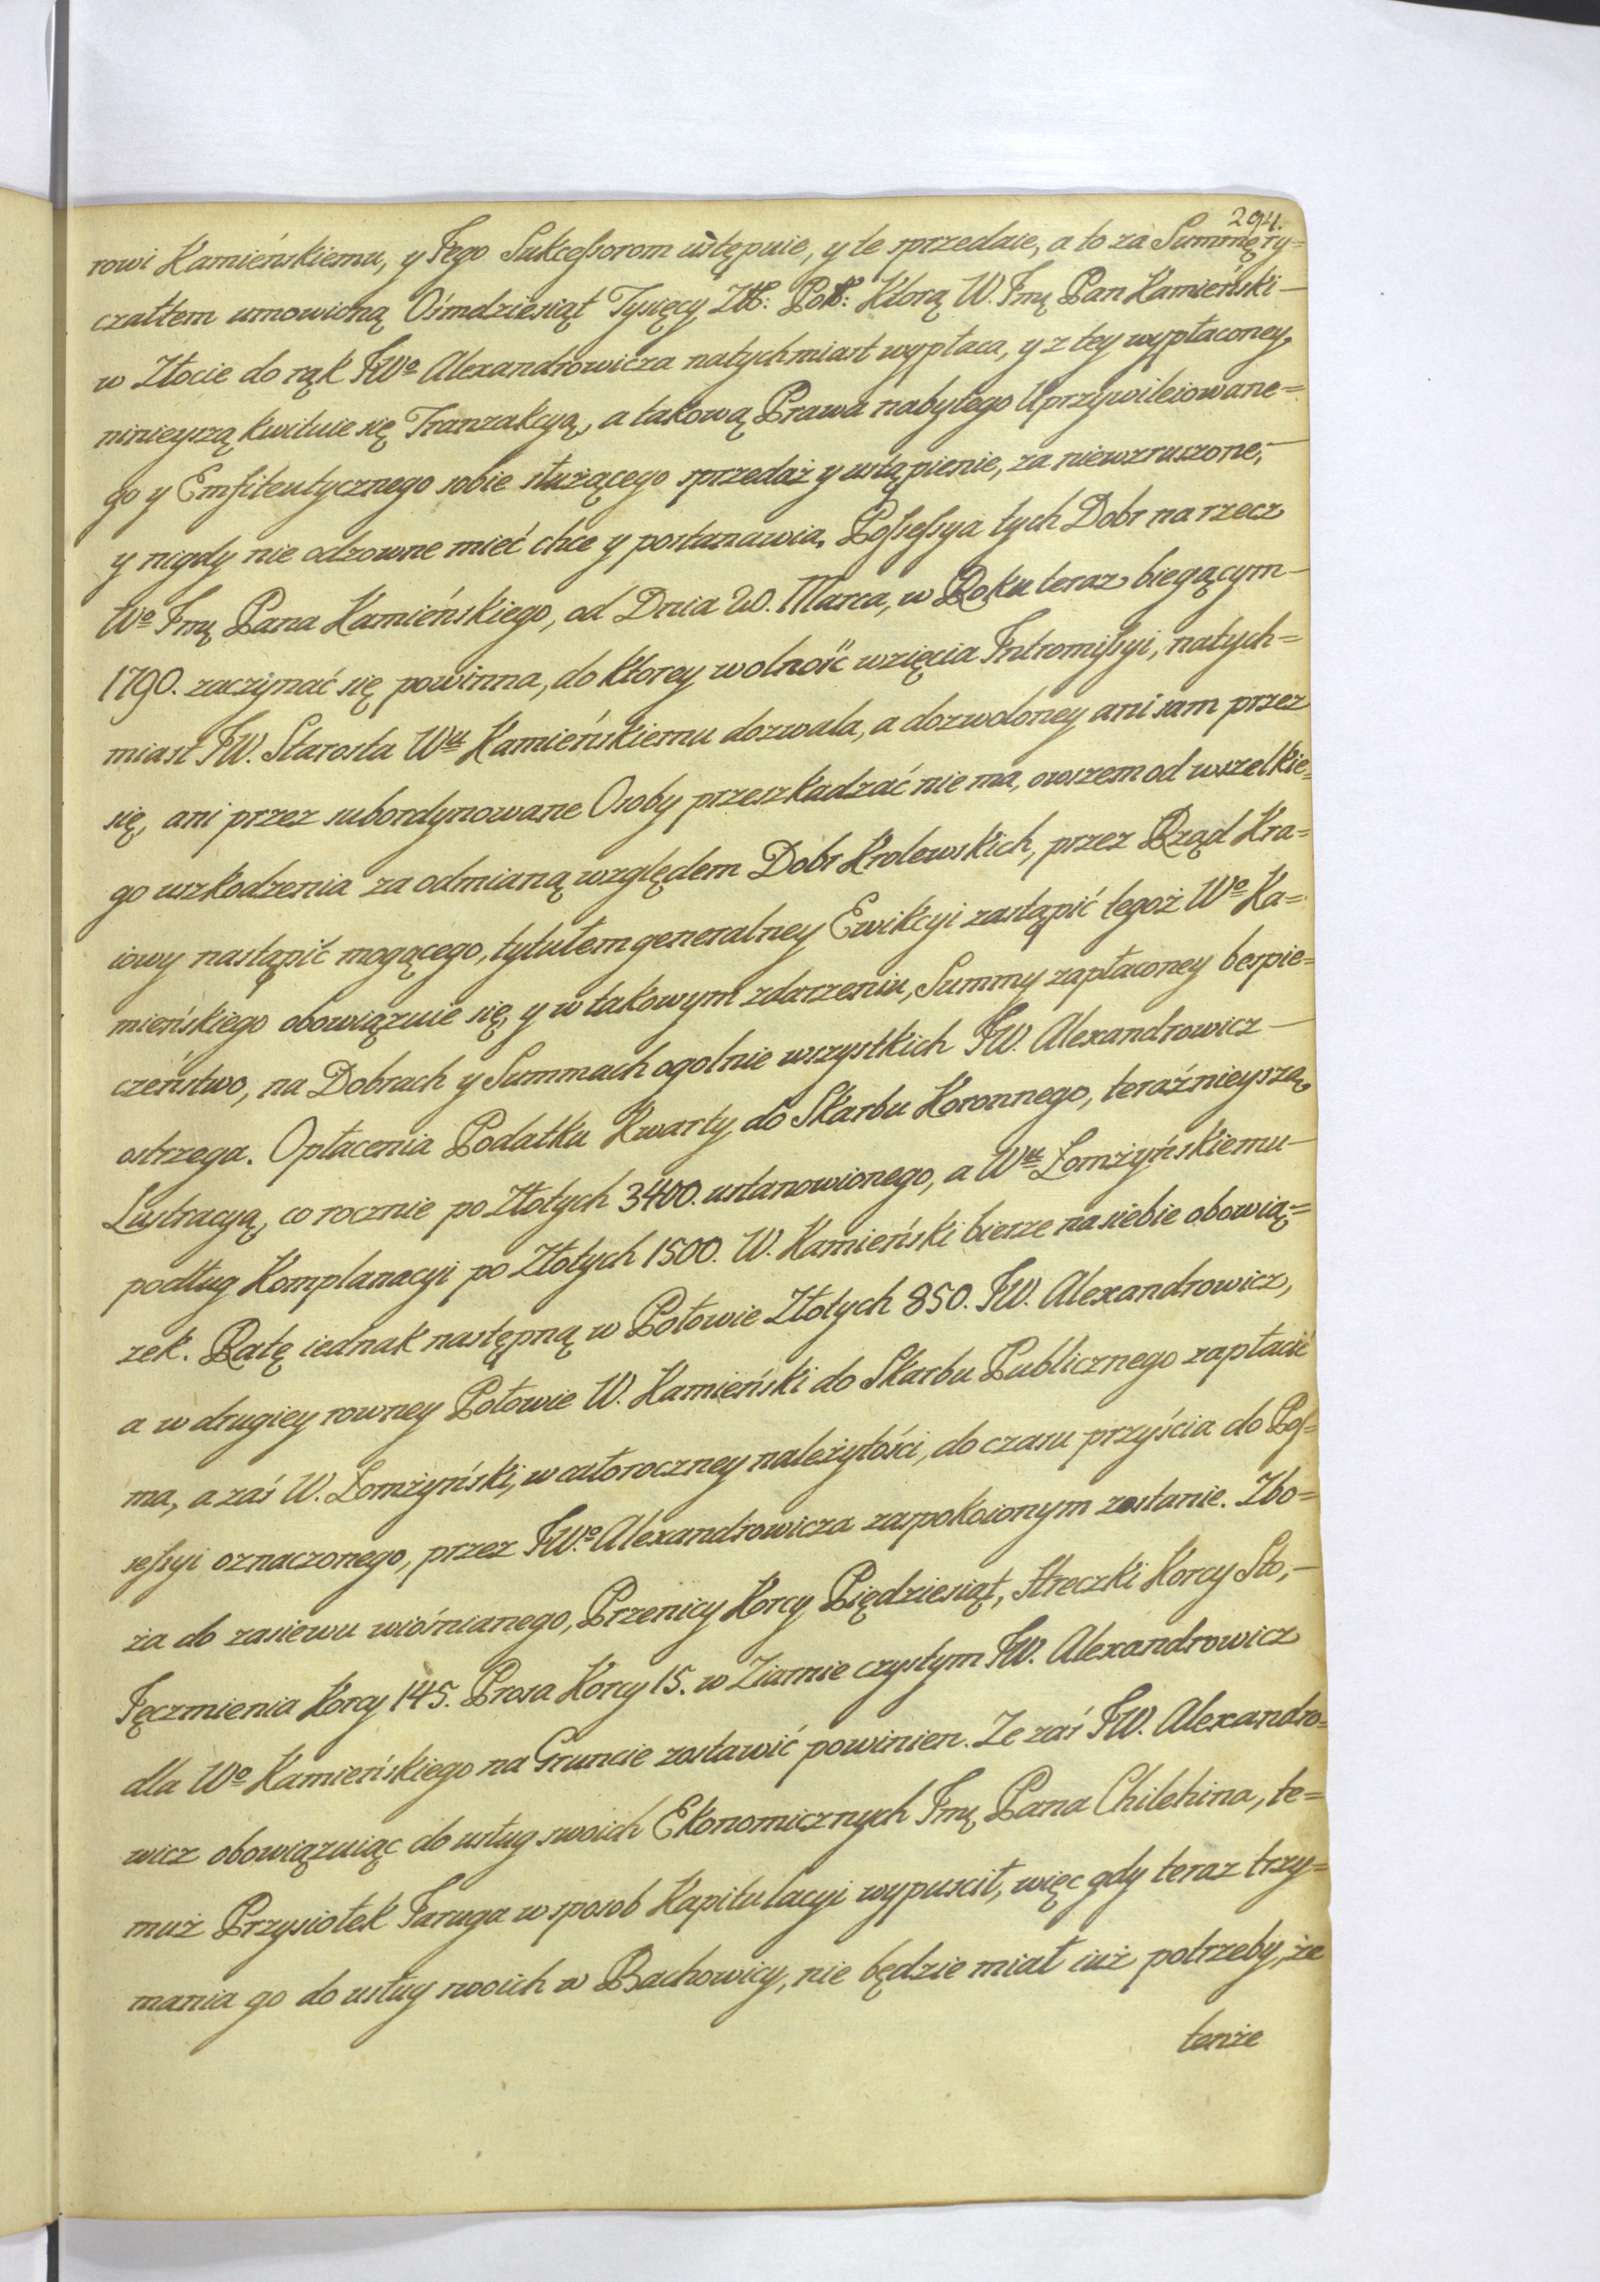 294.
rowi Kamieńskiemu, y Jego Sukcessorom ustępuie, y te sprzedaie, a to za Summę ry=
czałtem umowioną Ośmdziesiąt Tysięcy Złł: Poll: Ktorą W. Jmę Pan Kamieński—
w Złocie do rąk JWo Alexandrowicza natychmiast wypłaca, y z tey wypłaconey,
ninieyszą kwituie się Tranzakcyą, a takową Prawa nabytego Uprzywileiowane=
go y Emfiteutycznego sobie służącego sprzedaż y ustąpienie, za niewzruszone,—
y nigdy nie odzowne mieć chce y postanawia. Possessya tych Dobr na rzecz
Wo Jmę Pana Kamieńskiego, od Dnia 20. Marca, w Roku teraz biegącym—
1790. zaczynać się powinna, do ktorey wolność wzięcia Intromissyi, natych=
miast JW. Starosta Wu Kamieńskiemu dozwala, a dozwoloney ani sam przez
się, ani przez subordynowane Osoby przeszkadzać nie ma, owszem od wszelkie=
go uszkodzenia za odmianą względem Dobr Krolewskich, przez Rząd Kra=
iowy nastąpić mogącego, tytułem generalney Ewikcyi zastąpić tegoż Wo Ka=
mieńskiego obowiązuie się, y w takowym zdarzeniu, Summy zapłaconey bespie=
czeństwo, na Dobrach y Summach ogolnie wszystkich JW. Alexandrowicz—
ostrzega. Opłacenia Podatku Kwarty do Skarbu Koronnego, teraźnieyszą
Lustracyą, co rocznie po Złotych 3400. ustanowionego, a Wu Łomżyńskiemu—
podług Komplanacyi po Złotych 1500. W. Kamieński bierze na siebie obowią=
zek. Ratę iednak następną w Połowie Złotych 850. JW. Alexandrowicz,
a w drugiey rowney Połowie W. Kamieński do Skarbu Publicznego zapłacić
ma, a zaś W. Łomżyński, w całoroczney należytości, do czasu przyścia do Pos=
sessyi oznaczonego, przez JWo Alexandrowicza zaspokoionym zostanie. Zbo=
ża do zasiewu wiośnianego, Przenicy Korcy Pięćdziesiąt, Hreczki Korcy Sto,—
Jęczmienia Korcy 145. Prosa Korcy 15. w Ziarnie czystym JW. Alexandrowicz
dla Wo Kamieńskiego na Gruncie zostawić powinien. Ze zaś JW. Alexandro=
wicz obowiązuiąc do usług swoich Ekonomicznych Jmę Pana Chilchina, te=
muż Przysiołek Jaruga w sposob Kapitulacyi wypuscił, więc gdy teraz trzy=
mania go do usług swoich w Bachowicy, nie będzie miał iuż potrzeby, że
tenże